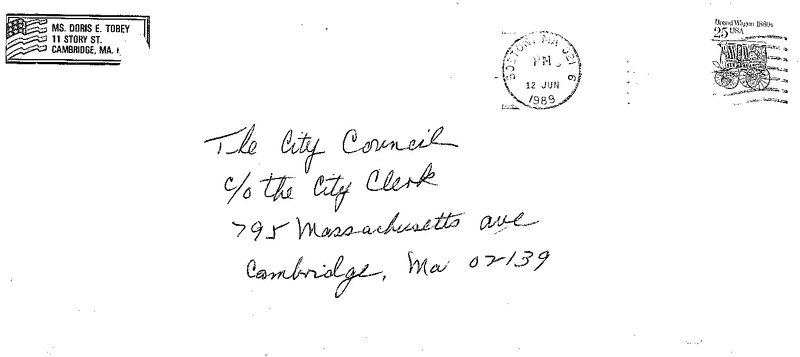 MS. DORIS E. TOBEY
11 STORY ST.
CAMBRIDGE, MA.
BOSTON, MA 021 6
PM
12 JUN
1989
Bread Wagon 1880s
25 USA
The City Council
c/o the City Clerk
795 Massachusetts ave
Cambridge, Ma 02139